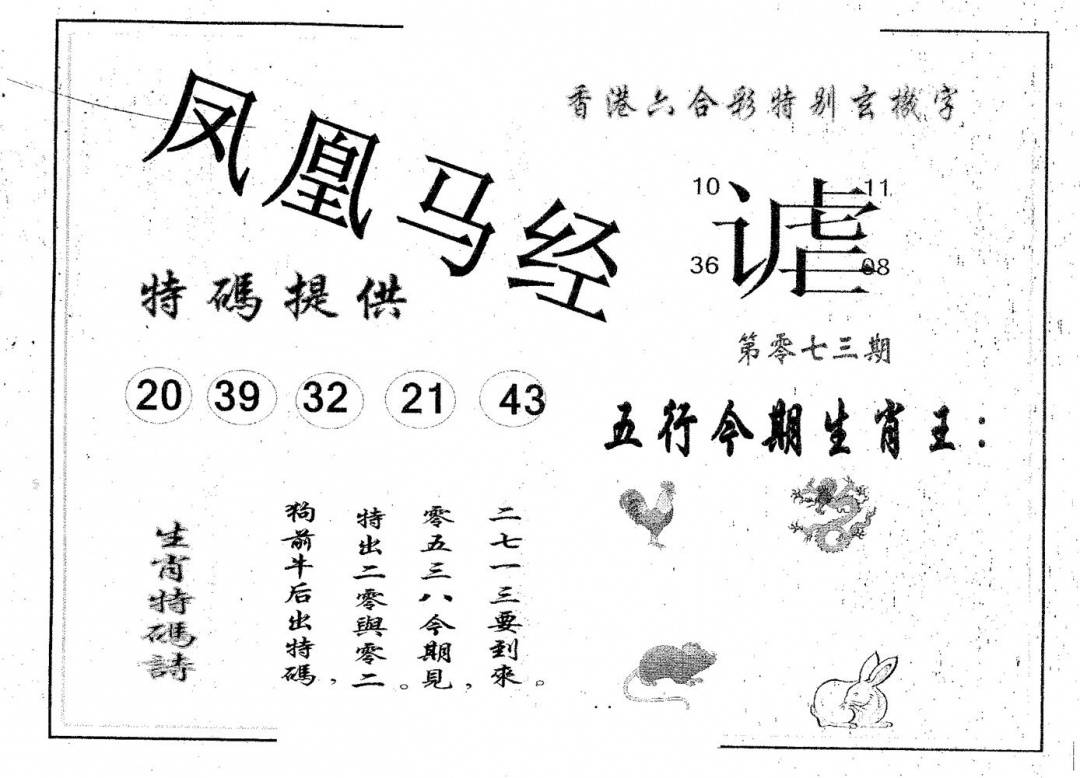 凤凰马经
香港六合彩特别玄機字
10
11
谑
36
08
特碼提供
第零七三期
20 39 32 21 43
五行今期生肖王：
生肖特碼詩
狗前牛后出特碼，
特出二零與零二。
零五三八今期見，
二七一三要到來。